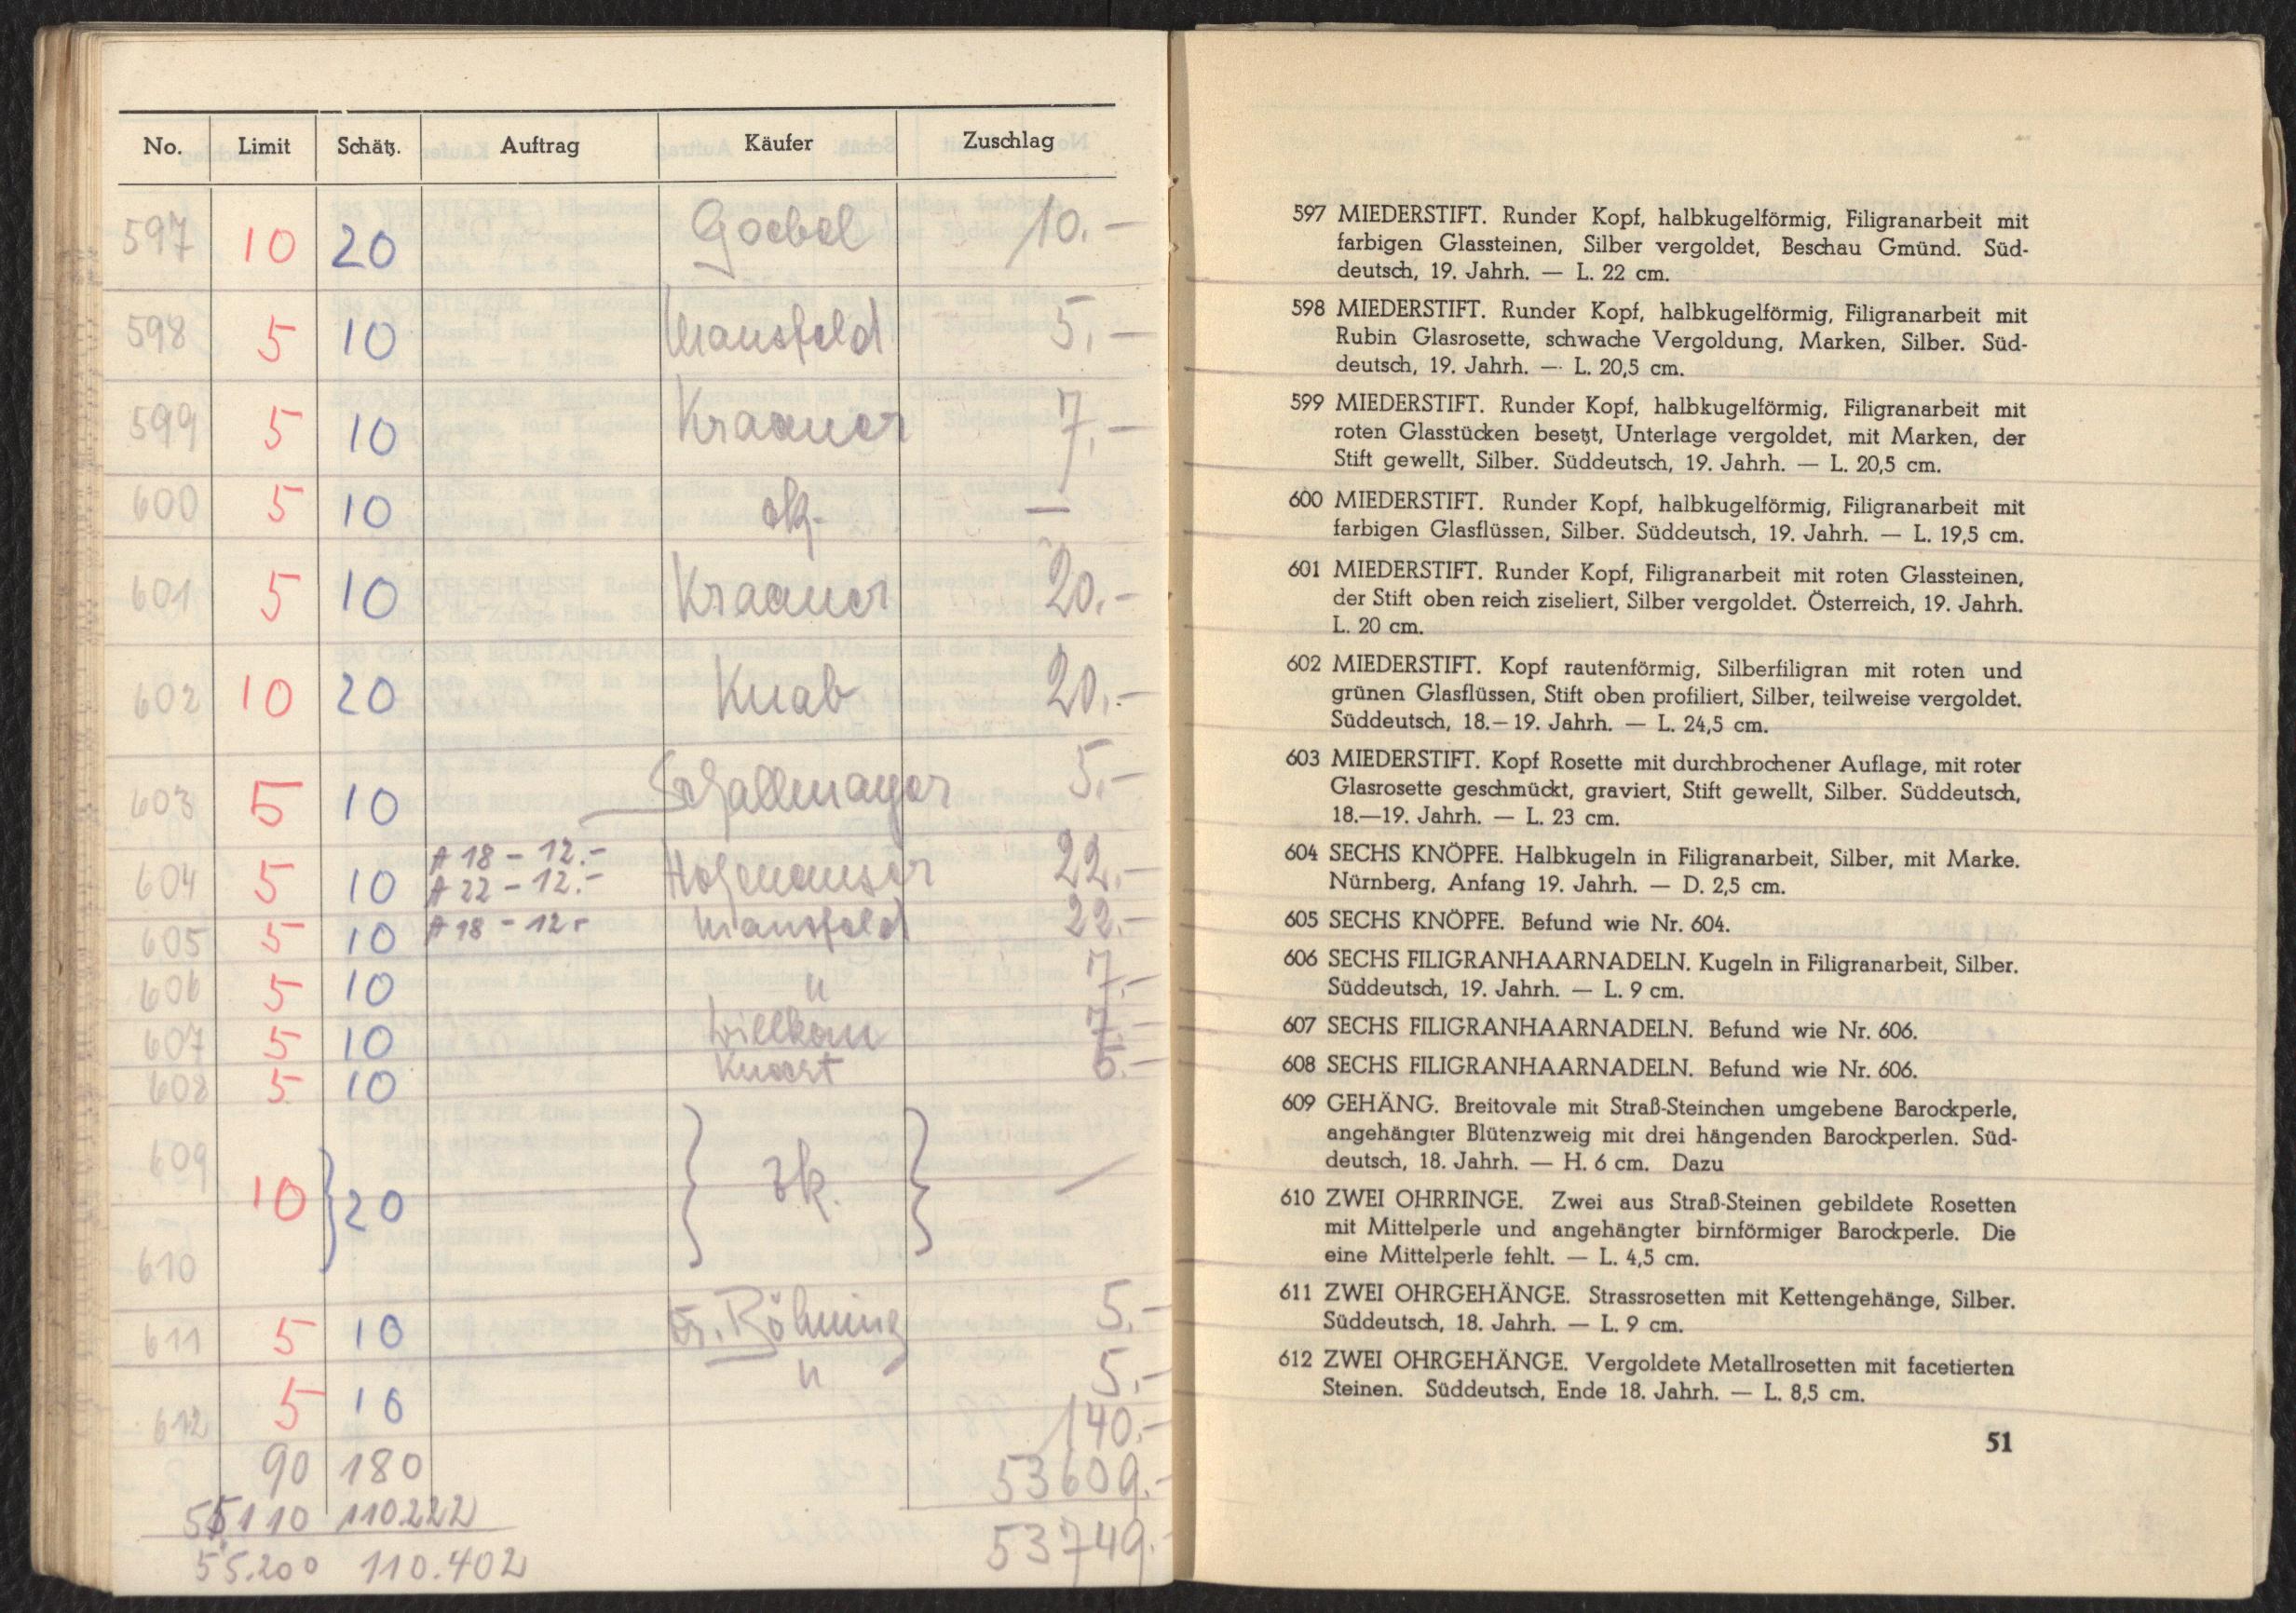 No. Limit Schätz. Auftrag Käufer Zuschlag
597 10 20 Goebel 10.-
598 5 10 Mansfeld 5,-
599 5 10 Kraauer 7,-
600 5 10 —
601 5 10 Kraauer 20,-
602 10 20 Knab 20,-
603 5 10 Schallmayer 5,-
604 5 10 A 18 - 12.- A 22 - 12.- 22,-
605 5 10 A 18 - 12.- Mansfeld 22.-
606 5 10 " 7.-
607 5 10 7.-
608 5 10 5.-
609
10 } 20 } zk. } —
610
611 5 10 Dr. Röhming 5,-
612 5 10 " 5,-
140.-
90 180 53609.-
55110 110222
55.200 110.402 53749.-
597 MIEDERSTIFT. Runder Kopf, halbkugelförmig, Filigranarbeit mit
farbigen Glassteinen, Silber vergoldet, Beschau Gmünd. Süd-
deutsch, 19. Jahrh. — L. 22 cm.
598 MIEDERSTIFT. Runder Kopf, halbkugelförmig, Filigranarbeit mit
Rubin Glasrosette, schwache Vergoldung, Marken, Silber. Süd-
deutsch, 19. Jahrh. — L. 20,5 cm.
599 MIEDERSTIFT. Runder Kopf, halbkugelförmig, Filigranarbeit mit
roten Glasstücken besetzt, Unterlage vergoldet, mit Marken, der
Stift gewellt, Silber. Süddeutsch, 19. Jahrh. — L. 20,5 cm.
600 MIEDERSTIFT. Runder Kopf, halbkugelförmig, Filigranarbeit mit
farbigen Glasflüssen, Silber. Süddeutsch, 19. Jahrh. — L. 19,5 cm.
601 MIEDERSTIFT. Runder Kopf, Filigranarbeit mit roten Glassteinen,
der Stift oben reich ziseliert, Silber vergoldet. Österreich, 19. Jahrh.
L. 20 cm.
602 MIEDERSTIFT. Kopf rautenförmig, Silberfiligran mit roten und
grünen Glasflüssen, Stift oben profiliert, Silber, teilweise vergoldet.
Süddeutsch, 18.—19. Jahrh. — L. 24,5 cm.
603 MIEDERSTIFT. Kopf Rosette mit durchbrochener Auflage, mit roter
Glasrosette geschmückt, graviert, Stift gewellt, Silber. Süddeutsch,
18.—19. Jahrh. — L. 23 cm.
604 SECHS KNÖPFE. Halbkugeln in Filigranarbeit, Silber, mit Marke.
Nürnberg, Anfang 19. Jahrh. — D. 2,5 cm.
605 SECHS KNÖPFE. Befund wie Nr. 604.
606 SECHS FILIGRANHAARNADELN. Kugeln in Filigranarbeit, Silber.
Süddeutsch, 19. Jahrh. — L. 9 cm.
607 SECHS FILIGRANHAARNADELN. Befund wie Nr. 606.
608 SECHS FILIGRANHAARNADELN. Befund wie Nr. 606.
609 GEHÄNG. Breitovale mit Straß-Steinchen umgebene Barockperle,
angehängter Blütenzweig mit drei hängenden Barockperlen. Süd-
deutsch, 18. Jahrh. — H. 6 cm. Dazu
610 ZWEI OHRRINGE. Zwei aus Straß-Steinen gebildete Rosetten
mit Mittelperle und angehängter birnförmiger Barockperle. Die
eine Mittelperle fehlt. — L. 4,5 cm.
611 ZWEI OHRGEHÄNGE. Strassrosetten mit Kettengehänge, Silber.
Süddeutsch, 18. Jahrh. — L. 9 cm.
612 ZWEI OHRGEHÄNGE. Vergoldete Metallrosetten mit facetierten
Steinen. Süddeutsch, Ende 18. Jahrh. — L. 8,5 cm.
51